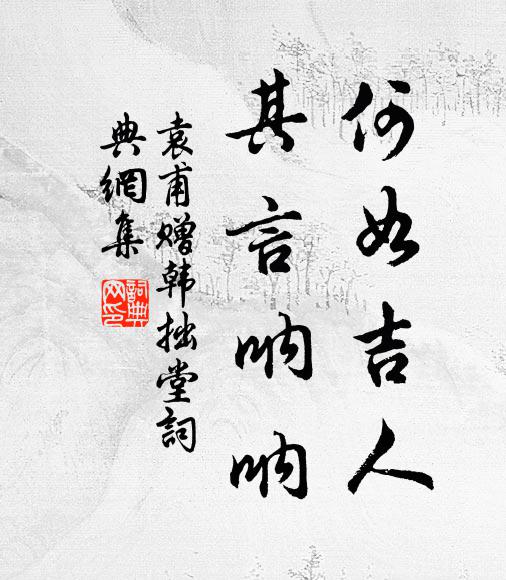 何如吉人
其言呐呐
袁甫赠韩拙堂詞
典網集
詞典网印